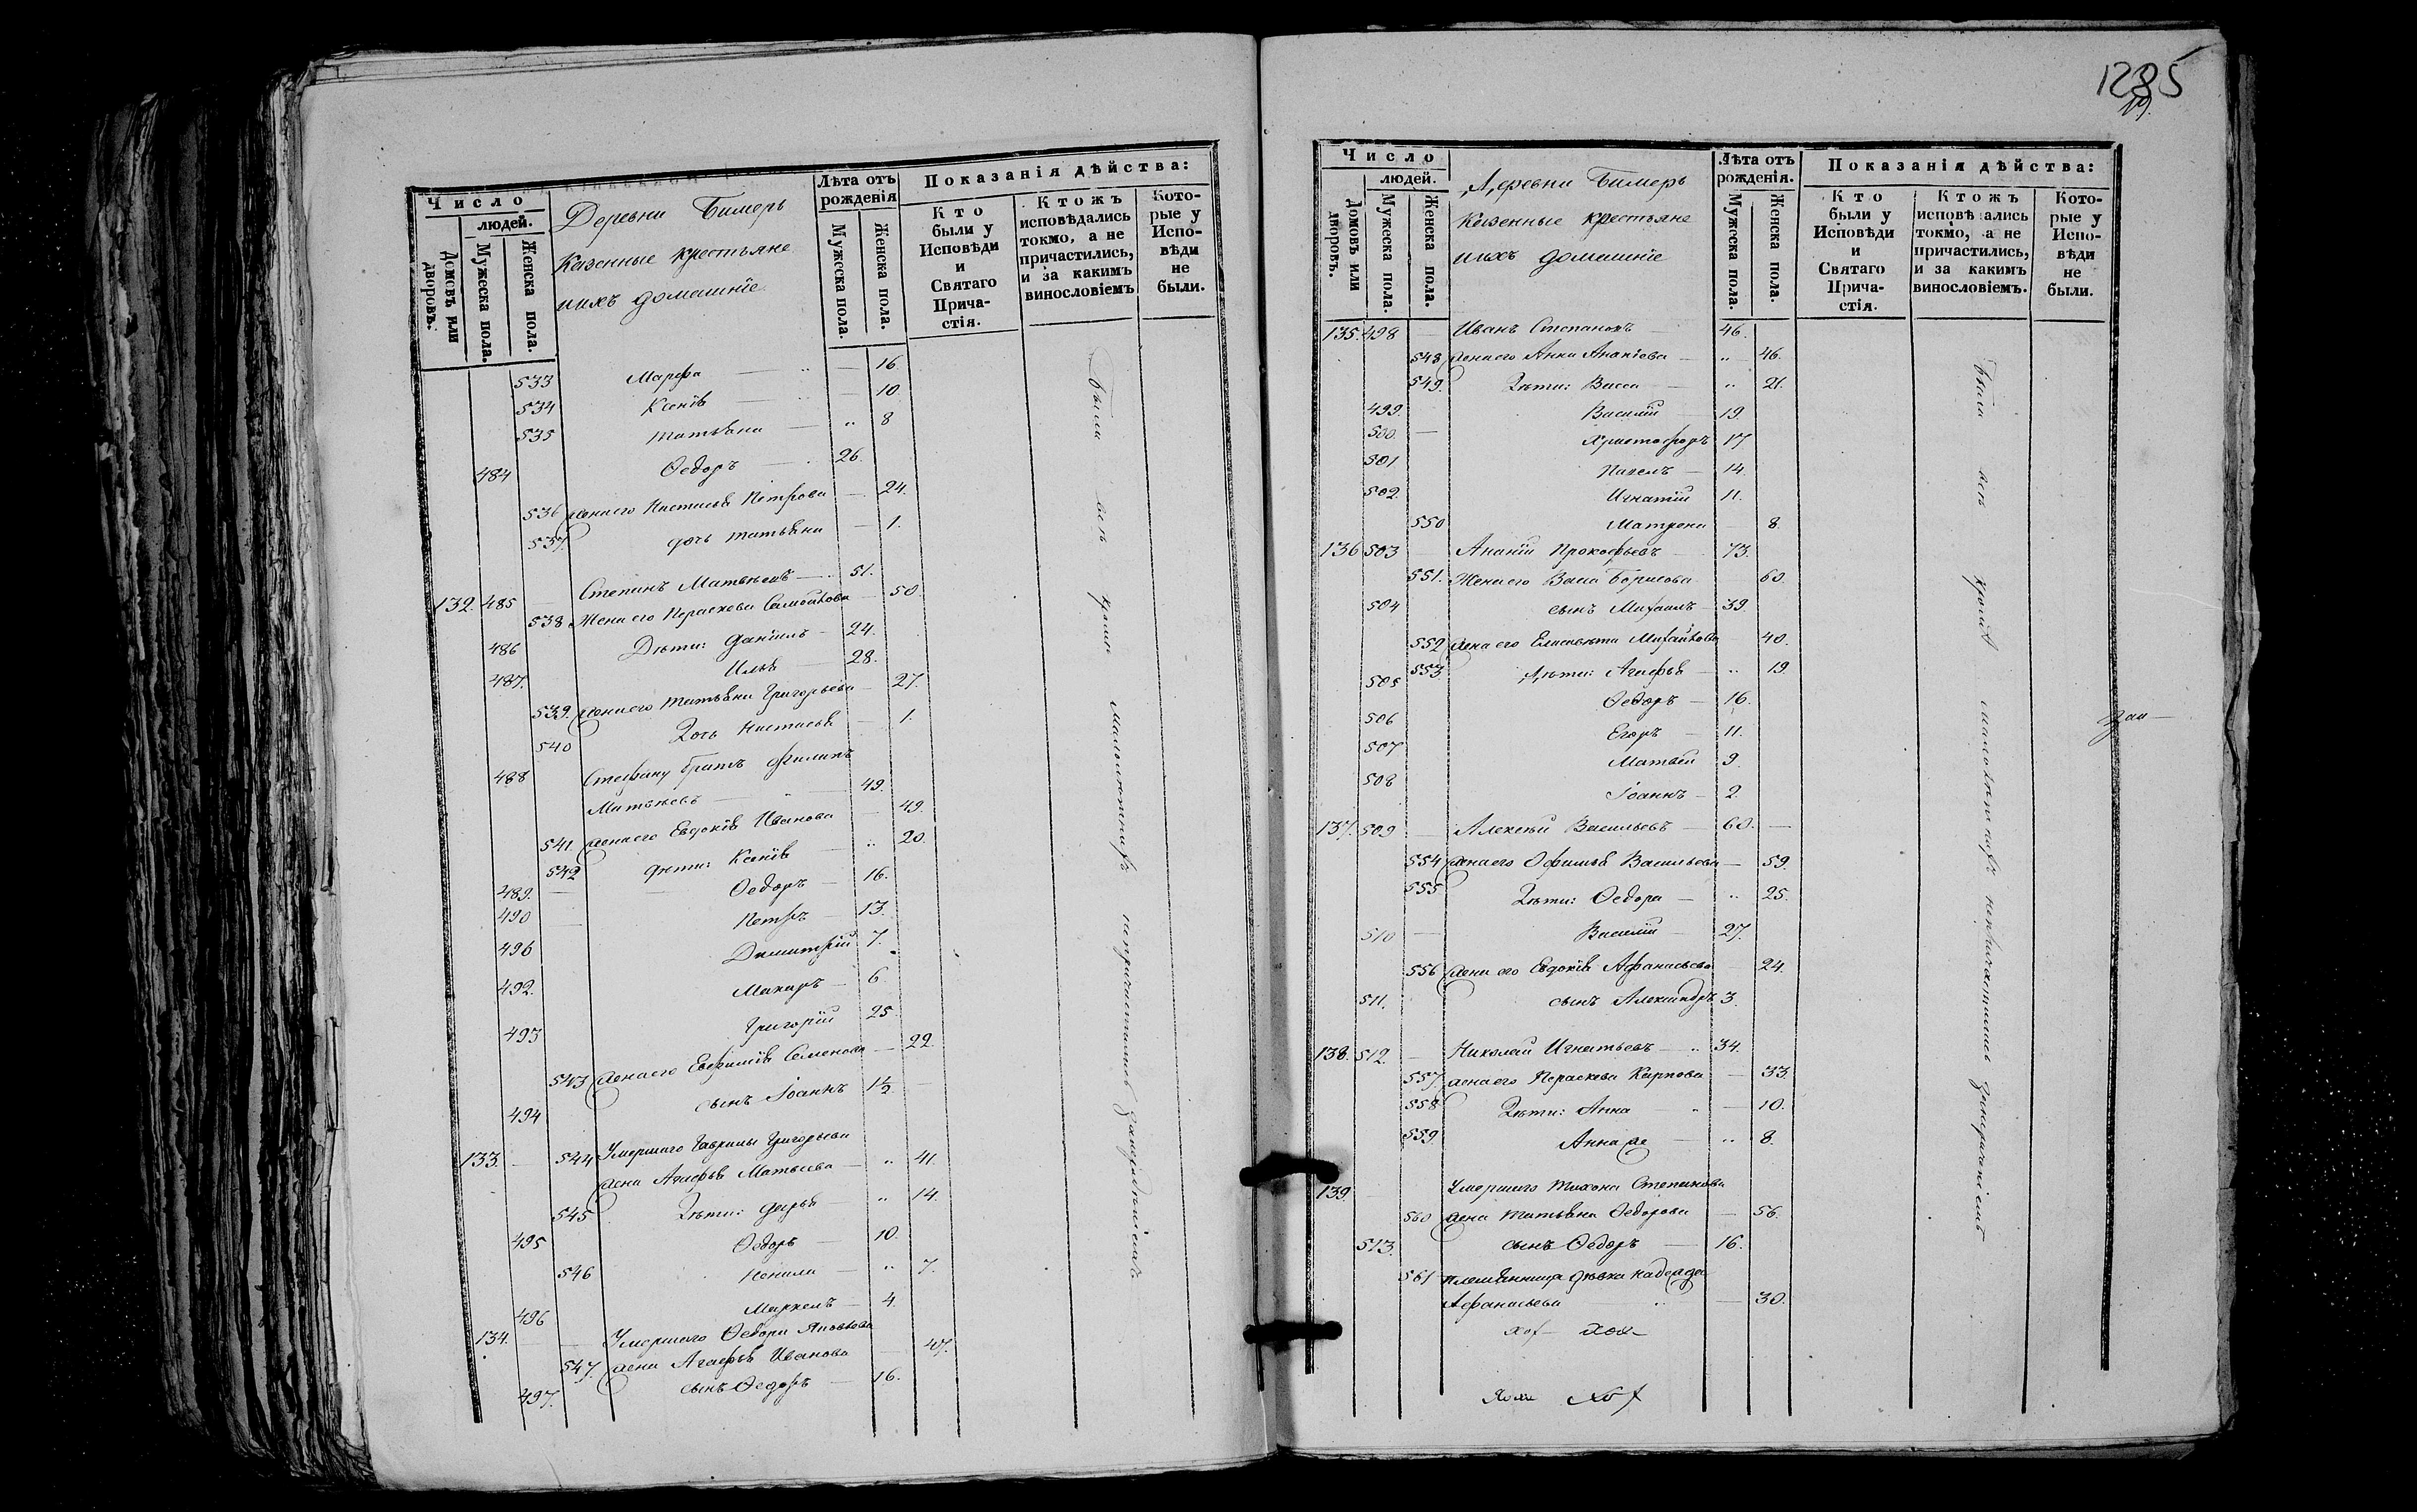 Число
людей.
Домовъ или дворовъ.
Мужеска пола.
Женска пола.
Деревни Бимеръ
Казенные крестьяне
иихъ домашніе
Лѣта отъ рожденія
Мужеска пола.
Женска пола.
Показанія дѣйства:
Кто были у Исповѣди и Святаго Прича-стія.
Ктожъ исповѣдались токмо, а не причастились, и за какимъ винословіемъ
Кото-рые у Испо-вѣди не были.
533 Марфа — 16
534 Ксенія — 10.
535 Татьяна — „ 8
484 Ѳедоръ — 26.
536 жена его Настасья Петрова — 24.
537. дочь Татьяна — 1.
132. 485 Степанъ Матвѣевъ — 51.
538 Жена его Параскова Самойлова — 50
486 Дѣти: Даніилъ — 24.
487. Илья — 28.
539. жена его Татьяна Григорьева — 27.
540 Дочь Настасья — 1.
488 Стефану братъ Филипъ
Матвѣевъ — 49.
541. жена его Евдокія Иванова — 49.
542 дѣти: Ксенія — „ 20.
489. — Ѳедоръ — 16.
490 — Петръ 13.
496 Димитрій 7.
492. Макаръ — 6.
493 Григорій 25
543 жена его Евфимія Семенова — 22.
494 сынъ Іоаннъ 1½
133. — 544 Умершаго Гаврилы Григорьева
жена Агафья Матвеева — „ 41.
545 Дѣти: Дарья — „ 14.
495 Ѳедоръ — 10.
546 Ненила — „ 7.
496 Маркелъ — 4.
134. — — Умершаго Ѳедора Яковлева
547. жена Агафья Иванова — 47.
497. сынъ Ѳедоръ — 16.
Были всѣ кромѣ малолѣтныхъ непричастились
1285
19.
Число
людей.
Домовъ или дворовъ.
Мужеска пола.
Женска пола.
Деревни Бимеръ
Казенные крестьяне
иихъ домашніе
Лѣта отъ рожденія.
Мужеска пола.
Женска пола.
Показанія дѣйства:
Кто были у Исповѣди и Святаго Прича-стія.
Ктожъ исповѣ ались токмо, а не причастились, и за какимъ винословіемъ.
Кото-рые у Испо-вѣди не были.
135. 498 — Иванъ Степановъ 46.
548 жена его Анна Ананіева — „ 46.
549. Дѣти: Васса — „ 21.
499. Василій 19.
500. — Христофоръ 17
501 Павелъ — 14.
502. Игнатій 11.
550 Матрена — 8.
136 503 — Ананій Прокофьевъ 73.
551. Жена его Васа Борисова 60.
504 сынъ Михаилъ — 39
552 жена его Елисавета Михайлова 40.
553 Дѣти: Агафья — „ 19.
505 Ѳедоръ — 16.
506 Егоръ — 11.
507 Матвей 9.
508 Іоаннъ — 2.
137. 509 — Алексѣй Васильевъ — 60. —
554 жена его Офимья Васильева — 59.
555 Дѣти: Ѳедора — „ 25.
510 — Василій — 27.
556 жена его Евдокія Афанасьева — 24.
511. сынъ Александръ 3.
138. 512. — Николай Игнатьевъ — „ 34.
557 жена его Параскева Карпова — 33.
558 Дѣти: Анна — „ — 10.
559. Анна же — „ 8.
139. Умершаго Тихона Степанова
560 жена Татьяна Ѳедорова — 56.
513. сынъ Ѳедоръ — 16.
561 племянница дѣвка Надежда
Афанасьева — „ — 30.
Были всѣ кромѣ малолѣтныхъ непричастились